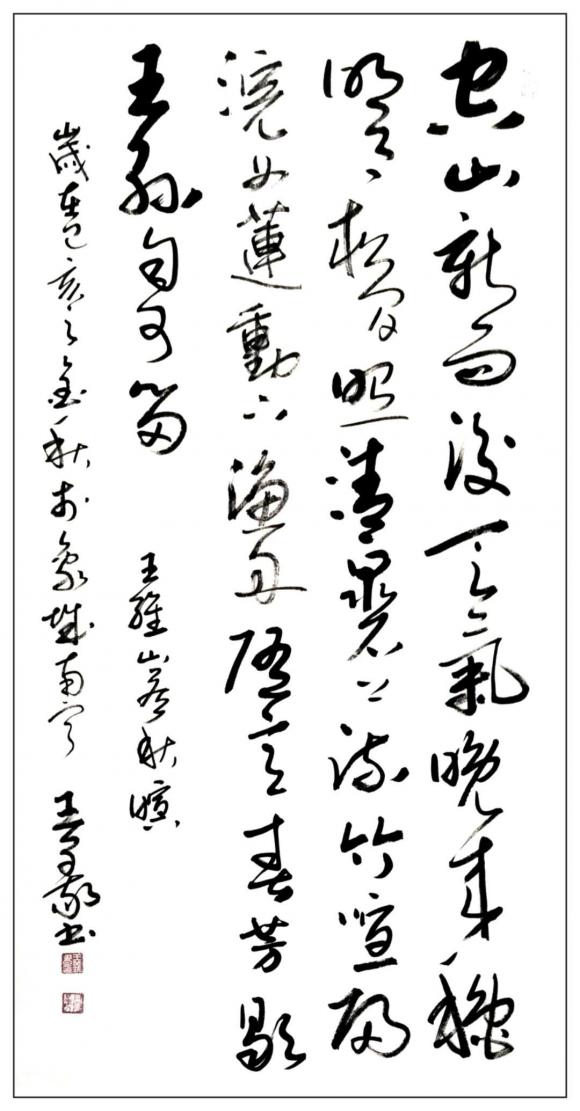 空山新雨後天氣晚來穐
明月松間照清泉石上流竹喧歸
浣女蓮動下漁舟隨意春芳歇
王孫自可留 王維山居秋暝
歲在己亥之金秋於城南寧 書